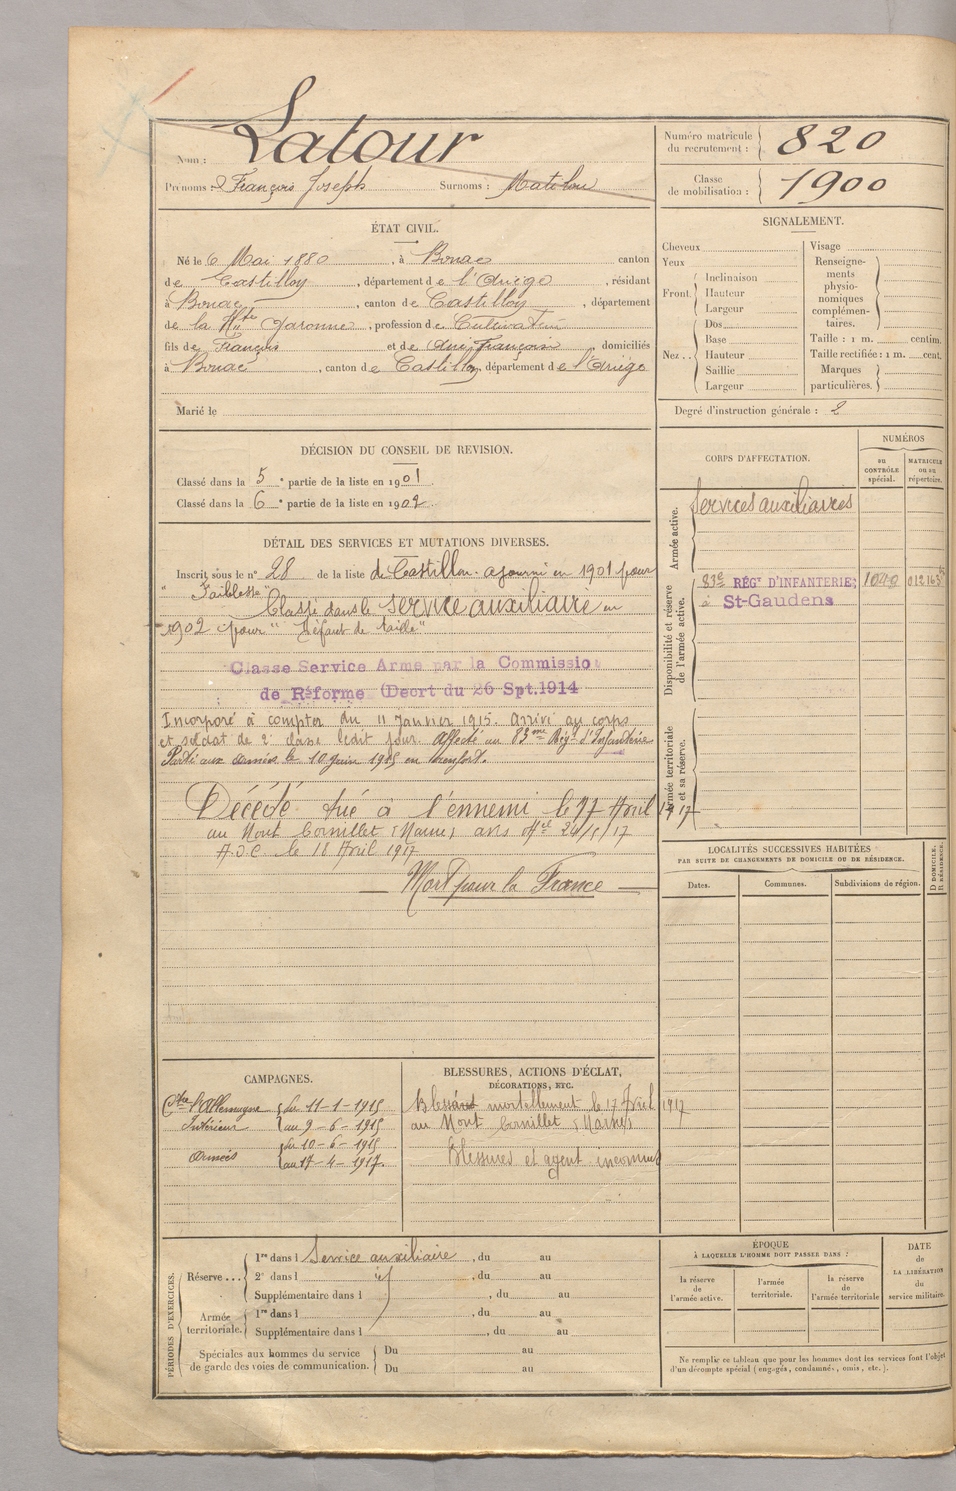 Nom : Latour
Prénoms : François Joseph Surnoms :
Numéro matricule du recrutement : 820
Classe de mobilisation : 1900
ÉTAT CIVIL.
Né le 6 Mai 1880, à Bonac canton
de Castillon, département de l'Ariège, résidant
à Bonac, canton de Castillon, département
de la Hte Garonne, profession de Cultivateur
fils de François et de domiciliés
à Bonac, canton de Castillon, département de l'Ariège
Marié le
DÉCISION DU CONSEIL DE REVISION.
Classé dans la 5e partie de la liste en 1901
Classé dans la 6e partie de la liste en 1902.
DÉTAIL DES SERVICES ET MUTATIONS DIVERSES.
Inscrit sous le n° 28 de la liste de Castillon. ajourné en 1901 pour
"Faiblesse"
Classé dans le service auxiliaire en
1902 pour "Défaut de taille"
Classe Service Armé par la Commissio
de Réforme (Decrt du 26 Spt.1914
Incorporé à compter du 11 Janvier 1915. Arrivé au corps
et soldat de 2e classe ledit jour. Affecté au 83me Régt d'Infanterie
Parti aux armées le 10 juin 1915 en renfort.
Décédé tué à l'ennemi le 17 Avril 1917
au Mont Cornillet (Marne) 24/5/17
le 18 Avril 1917
— Mort pour la France —
CAMPAGNES.
Ctre l'Allemagne
Intérieur { du 11-1-1915
au 9-6-1915
Armées { du 10-6-1915
au 17-4-1917.
BLESSURES, ACTIONS D'ÉCLAT,
DÉCORATIONS, ETC.
mortellement le 17 Avril 1917
au Mont Cornillet (Marne)
Blessures et agent inconnus
PÉRIODES D'EXERCICES.
Réserve ...
1re dans l Service auxiliaire, du au
2e dans l id, du au
Supplémentaire dans l , du au
Armée territoriale.
1re dans l , du au
Supplémentaire dans l , du au
Spéciales aux hommes du service
de garde des voies de communication.
Du au
Du au
SIGNALEMENT.
Cheveux
Yeux
Front.
Inclinaison
Hauteur
Largeur
Nez ..
Dos
Base
Hauteur
Saillie
Largeur
Visage
Renseigne-
ments
physio-
nomiques
complémen-
taires.
Taille : 1 m. centim.
Taille rectifiée : 1 m. cent.
Marques
particulières.
Degré d'instruction générale : 2
CORPS D'AFFECTATION.
NUMÉROS
au
CONTRÔLE
spécial.
MATRICULE
ou au
répertoire.
Armée active.
Services auxiliaires
Disponibilité et réserve
de l'armée active.
83e RÉGt D'INFANTERIE;
à St-Gaudens
Armée territoriale
et sa réserve.
LOCALITÉS SUCCESSIVES HABITÉES
PAR SUITE DE CHANGEMENTS DE DOMICILE OU DE RÉSIDENCE.
Dates.
Communes.
Subdivisions de région.
D DOMICILE.
R RÉSIDENCE.
ÉPOQUE
À LAQUELLE L'HOMME DOIT PASSER DANS :
la réserve
de
l'armée active.
l'armée
territoriale.
la réserve
de
l'armée territoriale
DATE
de
LA LIBÉRATION
du
service militaire.
Ne remplir ce tableau que pour les hommes dont les services font l'objet
d'un décompte spécial (engagés, condamnés, omis, etc.).